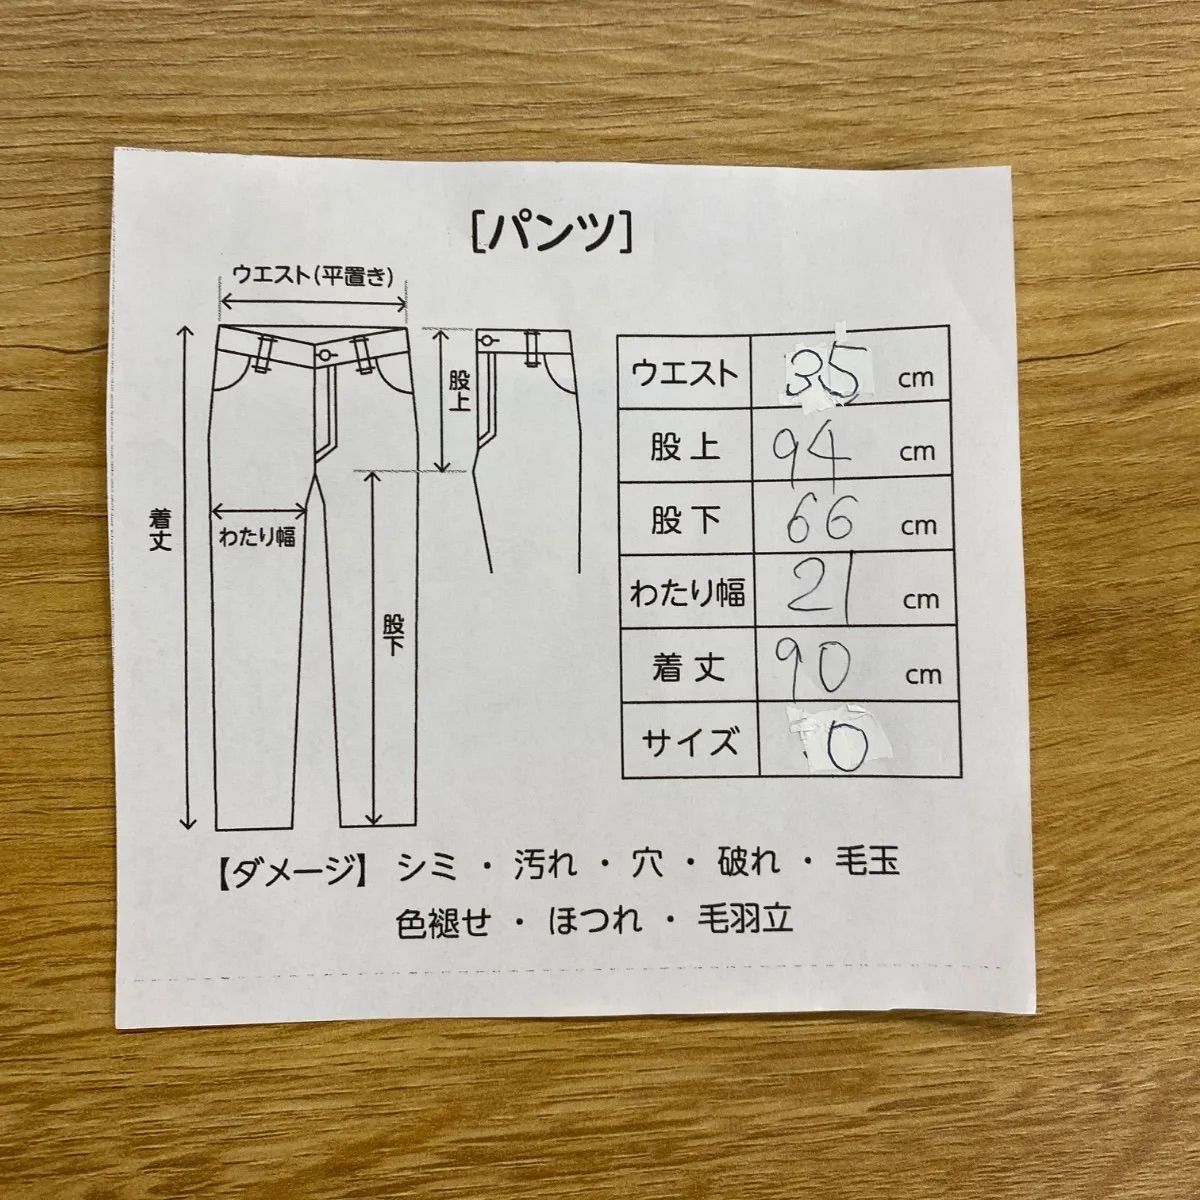 [パンツ]
ウエスト(平置き)
股上
着丈
わたり幅
股下
ウエスト 35 cm
股上 94 cm
股下 66 cm
わたり幅 21 cm
着丈 90 cm
サイズ 0
【ダメージ】 シミ ・ 汚れ ・ 穴 ・ 破れ ・ 毛玉
色褪せ ・ ほつれ ・ 毛羽立